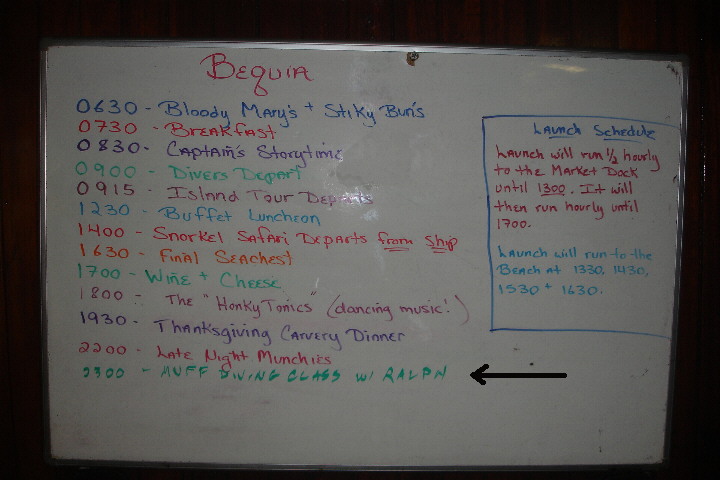 BEQUIA
0630 - Bloody Mary's + Stiky Bun's
0730 - Breakfast
0830 - Captain's Storytime
0900 - Divers Depart
0915 - Island Tour Departs
1230 - Buffet Luncheon
1400 - Snorkel Safari Departs from ship
1630 - Final Seachest
1700 - Wine + Cheese
1800 - The "Honky Tonics" (dancing music!)
1930 - Thanksgiving Carvery Dinner
2200 - Late Night Munchies
2300 - MUFF DIVING CLASS W/ RALPH
Launch Schedule
Launch will run 1/2 hourly
to the Market Dock
until 1300. It will
then run hourly until
1700.
Launch will run to the
Beach at 1330, 1430,
1530 + 1630.